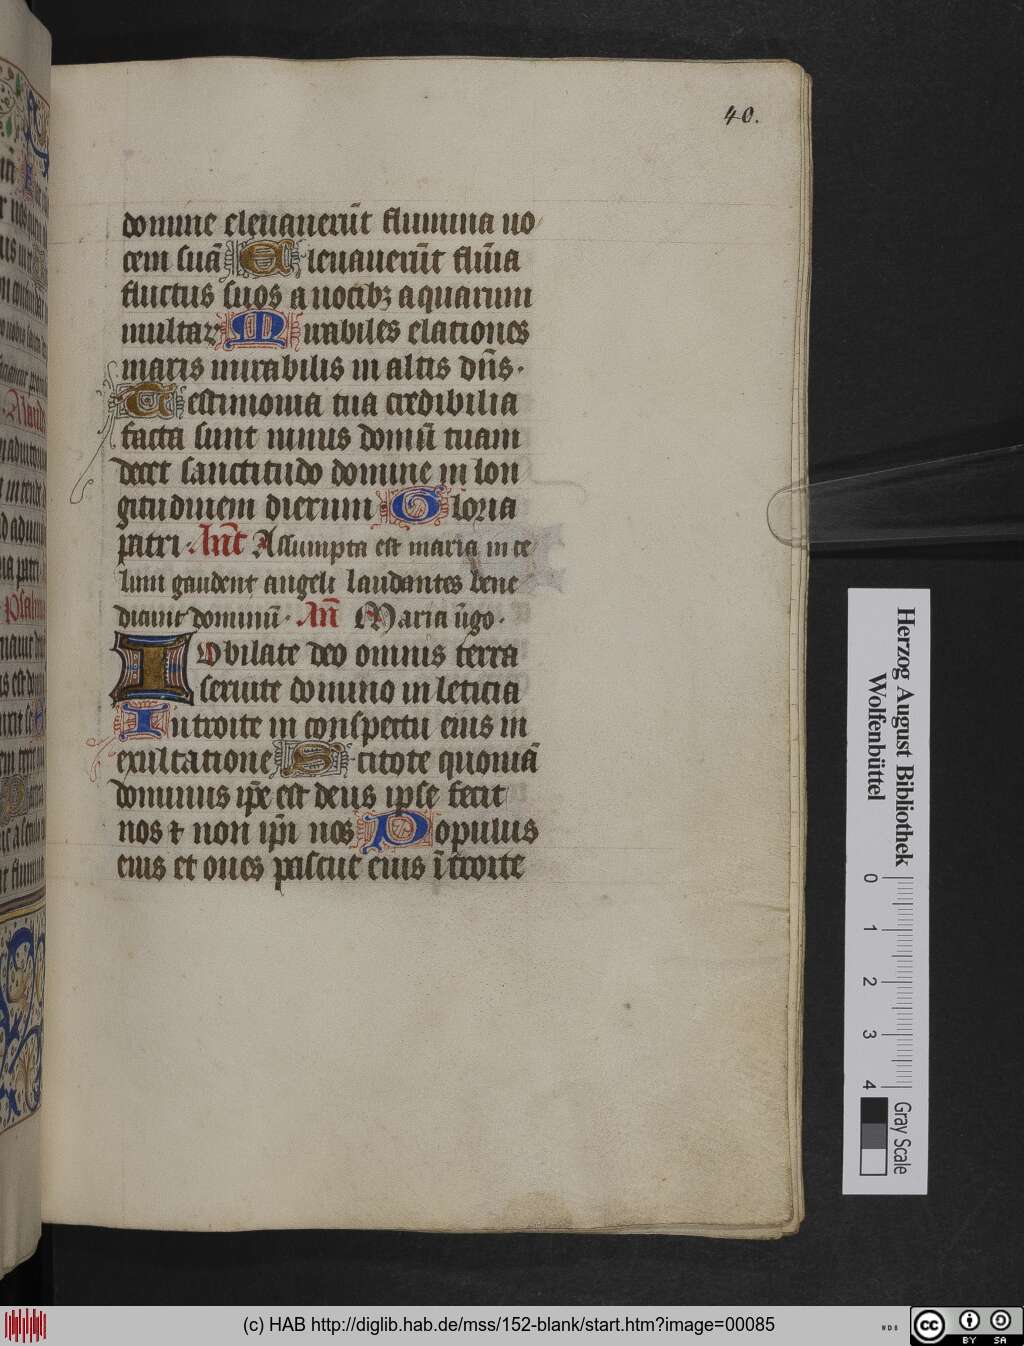 40.
domine eleuauerūt flumina uo
cem suā Eleuauerūt flūīa
fluctus suos a uocibꝫ aquarum
multaꝝ Mirabiles elationes
maris mirabilis in altis dn̄s·
Testimonia tua credibilia
facta sunt nimis domū tuam
decet sanctitudo domine in lon
gitudinem dierum Gloria
patri· Ant̄ Assumpta est maria in ce
lum gaudent angeli laudantes bene
dicunt dominū· An̄ Maria ūgo·
Iubilate deo omnis terra
seruite domino in leticia
Introite in conspectu eius in
exultatione Scitote quoniā
dominus ip̄e est deus ipse fecit
nos ⁊ non ip̄i nos Populus
eius et oues pascue eius ītroite
Herzog August Bibliothek
Wolfenbüttel
0 1 2 3 4
Gray Scale
(c) HAB http://diglib.hab.de/mss/152-blank/start.htm?image=00085
cc BY SA